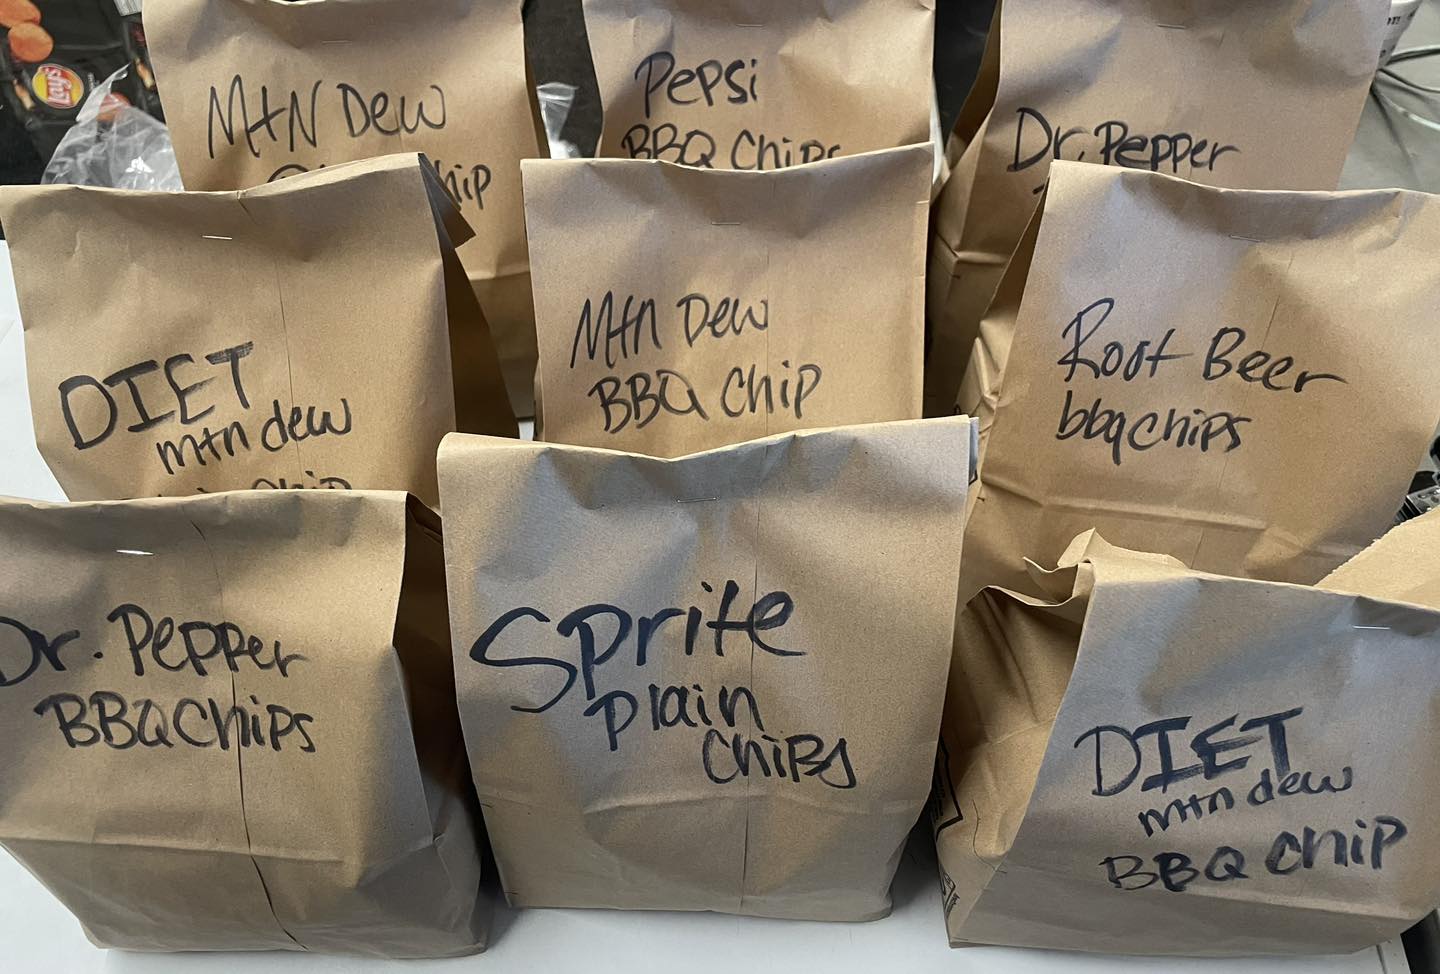 Lay's
MtN Dew
Pepsi
BBQ Chips
Dr. Pepper
DIET
mtn dew
Mtn Dew
BBQ Chip
Root Beer
bbq chips
Dr. Pepper
BBQ Chips
Sprite
plain
chips
DIET
mtn dew
BBQ Chip